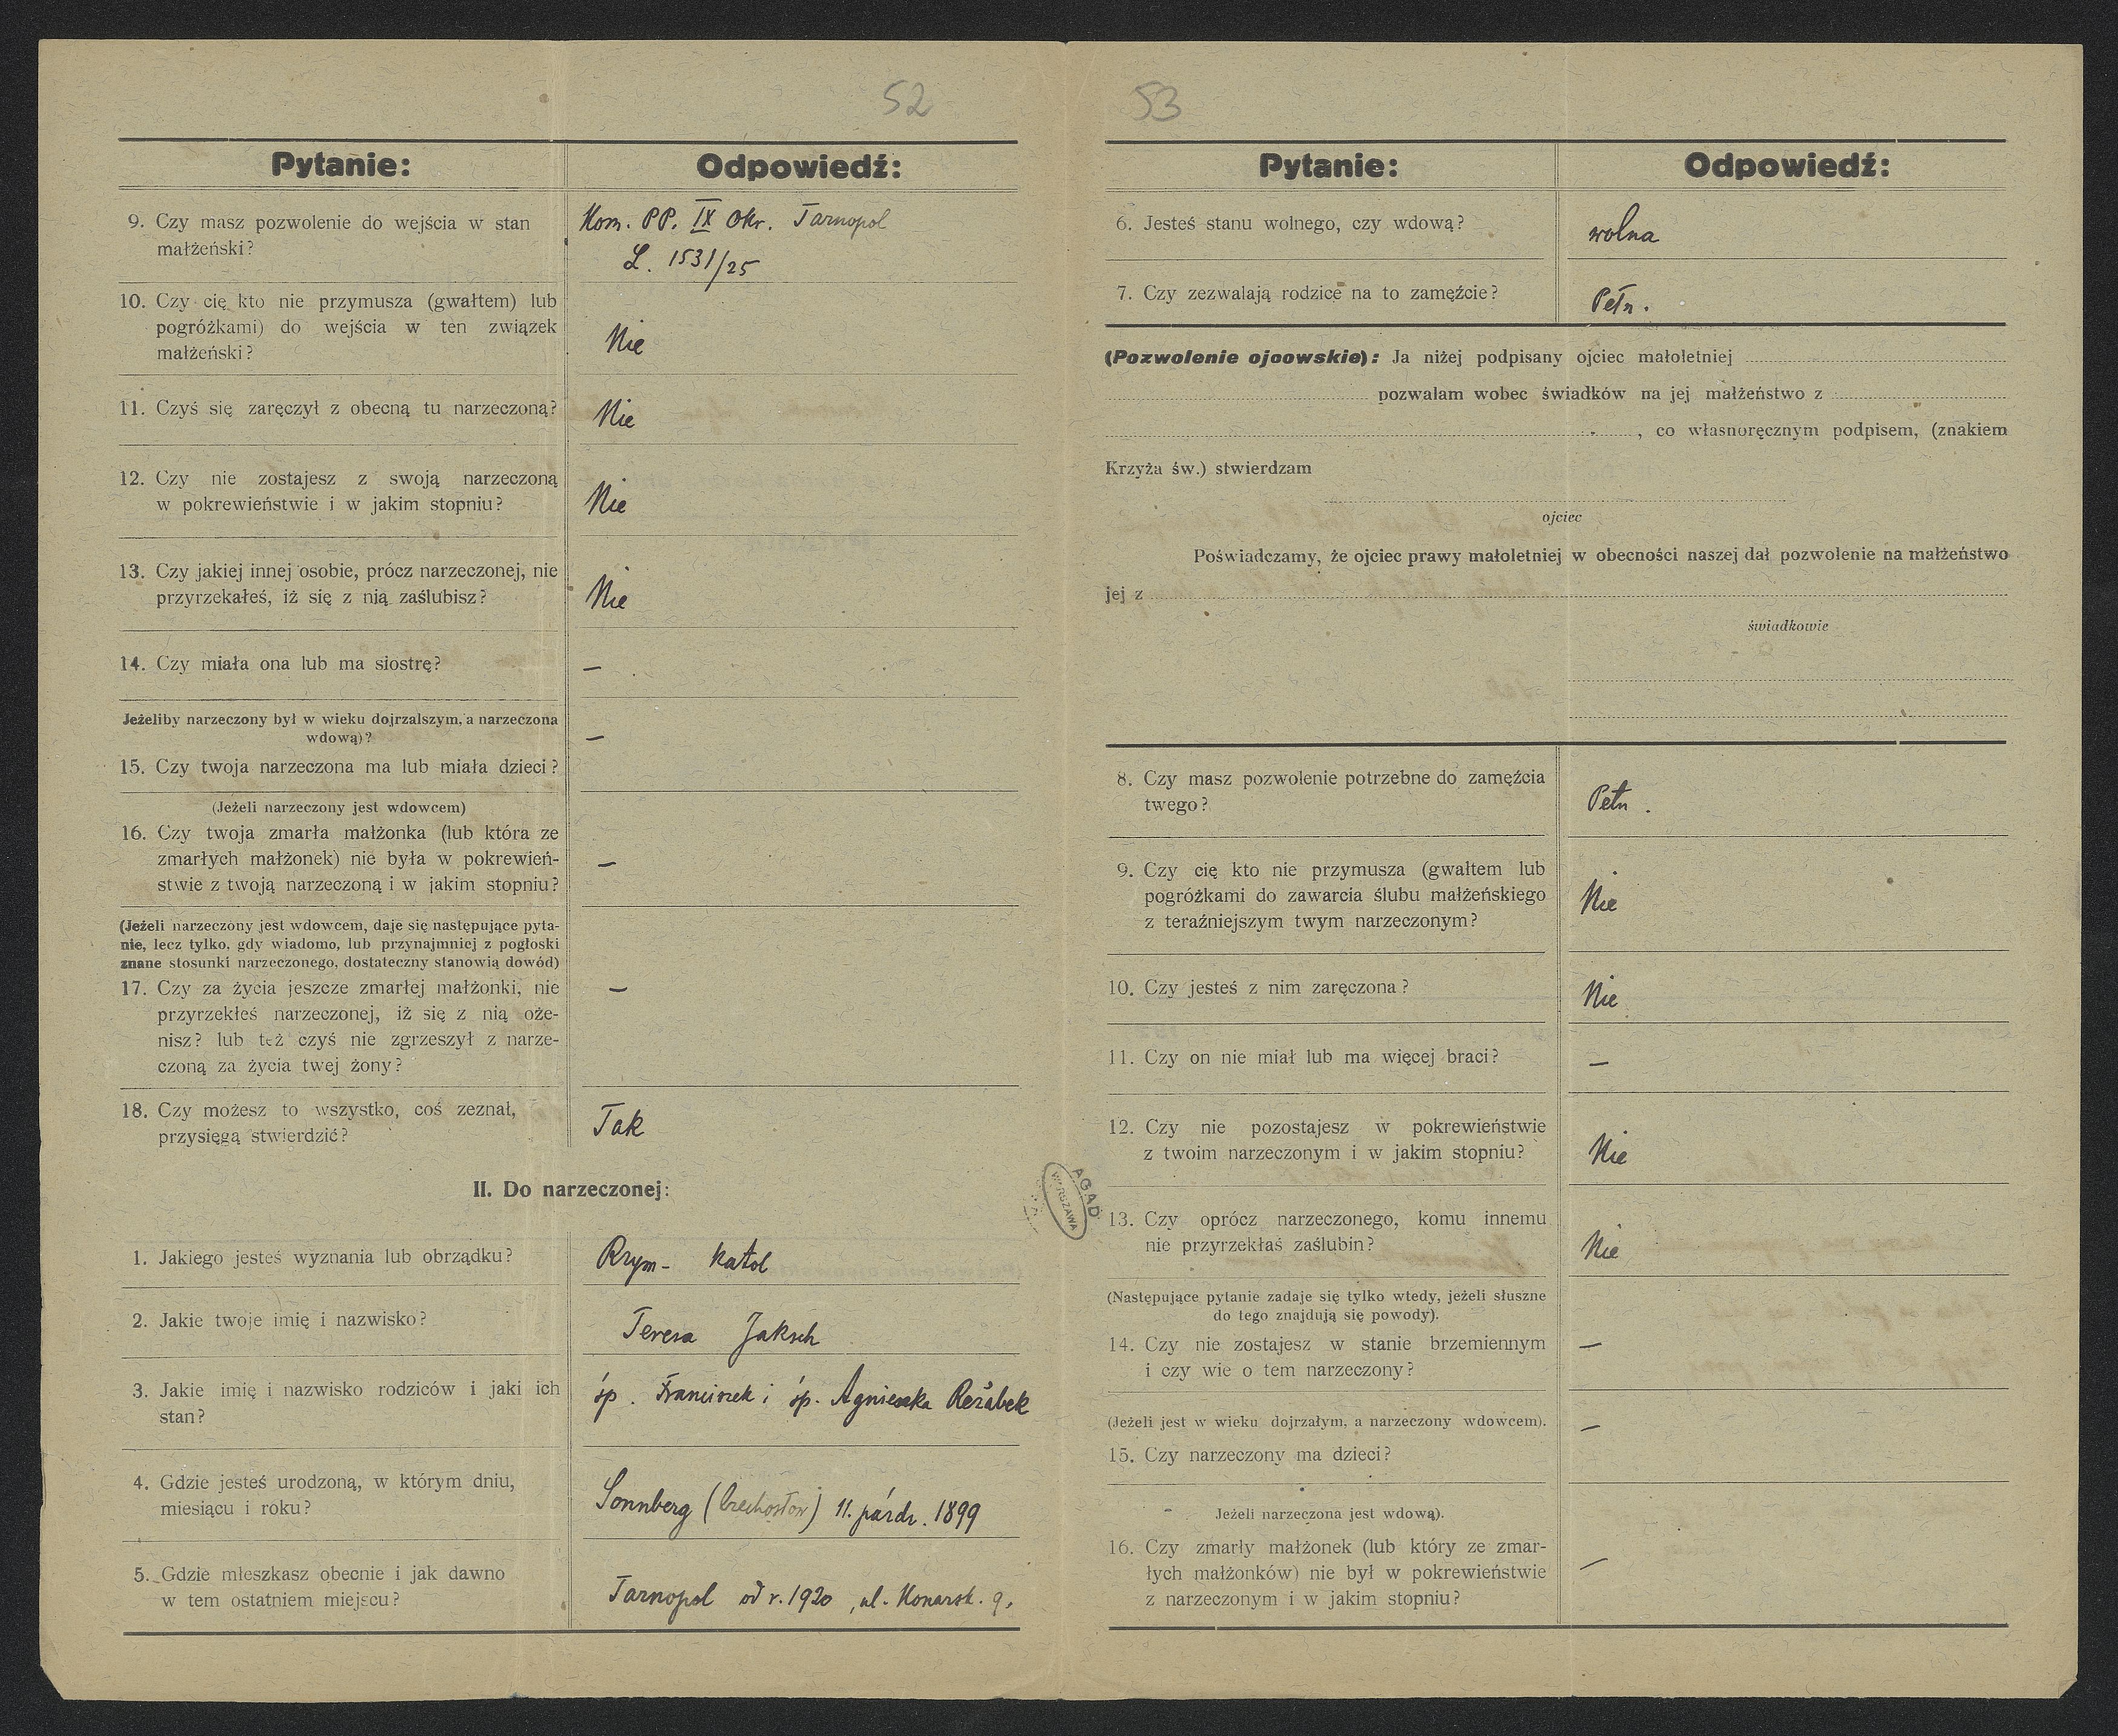 52
Pytanie:
Odpowiedź:
9. Czy masz pozwolenie do wejścia w stan
małżeński?
Kom. PP. IX Okr. Tarnopol
L. 1531/25
10. Czy cię kto nie przymusza (gwałtem) lub
pogróżkami) do wejścia w ten związek
małżeński?
Nie
11. Czyś się zaręczył z obecną tu narzeczoną?
Nie
12. Czy nie zostajesz z swoją narzeczoną
w pokrewieństwie i w jakim stopniu?
Nie
13. Czy jakiej innej osobie, prócz narzeczonej, nie
przyrzekałeś, iż się z nią zaślubisz?
Nie
14. Czy miała ona lub ma siostrę?
—
Jeżeliby narzeczony był w wieku dojrzalszym, a narzeczona
wdową)?
—
15. Czy twoja narzeczona ma lub miała dzieci?
(Jeżeli narzeczony jest wdowcem)
16. Czy twoja zmarła małżonka (lub która ze
zmarłych małżonek) nie była w pokrewień-
stwie z twoją narzeczoną i w jakim stopniu?
—
(Jeżeli narzeczony jest wdowcem, daje się następujące pyta-
nie, lecz tylko, gdy wiadomo, lub przynajmniej z pogłoski
znane stosunki narzeczonego, dostateczny stanowią dowód)
17. Czy za życia jeszcze zmarłej małżonki, nie
przyrzekłeś narzeczonej, iż się z nią oże-
nisz? lub też czyś nie zgrzeszył z narze-
czoną za życia twej żony?
—
18. Czy możesz to wszystko, coś zeznał,
przysięgą stwierdzić?
Tak
II. Do narzeczonej:
1. Jakiego jesteś wyznania lub obrządku?
Rzym- katol
2. Jakie twoje imię i nazwisko?
Teresa Jaksch
3. Jakie imię i nazwisko rodziców i jaki ich
stan?
śp. Franciszek i śp. Agnieszka Režabek
4. Gdzie jesteś urodzoną, w którym dniu,
miesiącu i roku?
Sonnberg (Czechosłow) 11. paźdz. 1899
5. Gdzie mieszkasz obecnie i jak dawno
w tem ostatniem miejscu?
Tarnopol od r. 1920, ul. Konarsk. 9.
AGAD
WARSZAWA
53
Pytanie:
Odpowiedź:
6. Jesteś stanu wolnego, czy wdową?
wolna
7. Czy zezwalają rodzice na to zamęźcie?
Pełn.
(Pozwolenie ojcowskie): Ja niżej podpisany ojciec małoletniej
pozwalam wobec świadków na jej małżeństwo z
, co własnoręcznym podpisem, (znakiem
Krzyża św.) stwierdzam
ojciec
Poświadczamy, że ojciec prawy małoletniej w obecności naszej dał pozwolenie na małżeństwo
jej z
świadkowie
8. Czy masz pozwolenie potrzebne do zamęźcia
twego?
Pełn.
9. Czy cię kto nie przymusza (gwałtem lub
pogróżkami do zawarcia ślubu małżeńskiego
z teraźniejszym twym narzeczonym?
Nie
10. Czy jesteś z nim zaręczona?
Nie
11. Czy on nie miał lub ma więcej braci?
—
12. Czy nie pozostajesz w pokrewieństwie
z twoim narzeczonym i w jakim stopniu?
Nie
13. Czy oprócz narzeczonego, komu innemu
nie przyrzekłaś zaślubin?
Nie
(Następujące pytanie zadaje się tylko wtedy, jeżeli słuszne
do tego znajdują się powody).
14. Czy nie zostajesz w stanie brzemiennym
i czy wie o tem narzeczony?
—
(Jeżeli jest w wieku dojrzałym, a narzeczony wdowcem).
—
15. Czy narzeczony ma dzieci?
Jeżeli narzeczona jest wdową).
16. Czy zmarły małżonek (lub który ze zmar-
łych małżonków) nie był w pokrewieństwie
z narzeczonym i w jakim stopniu?
—